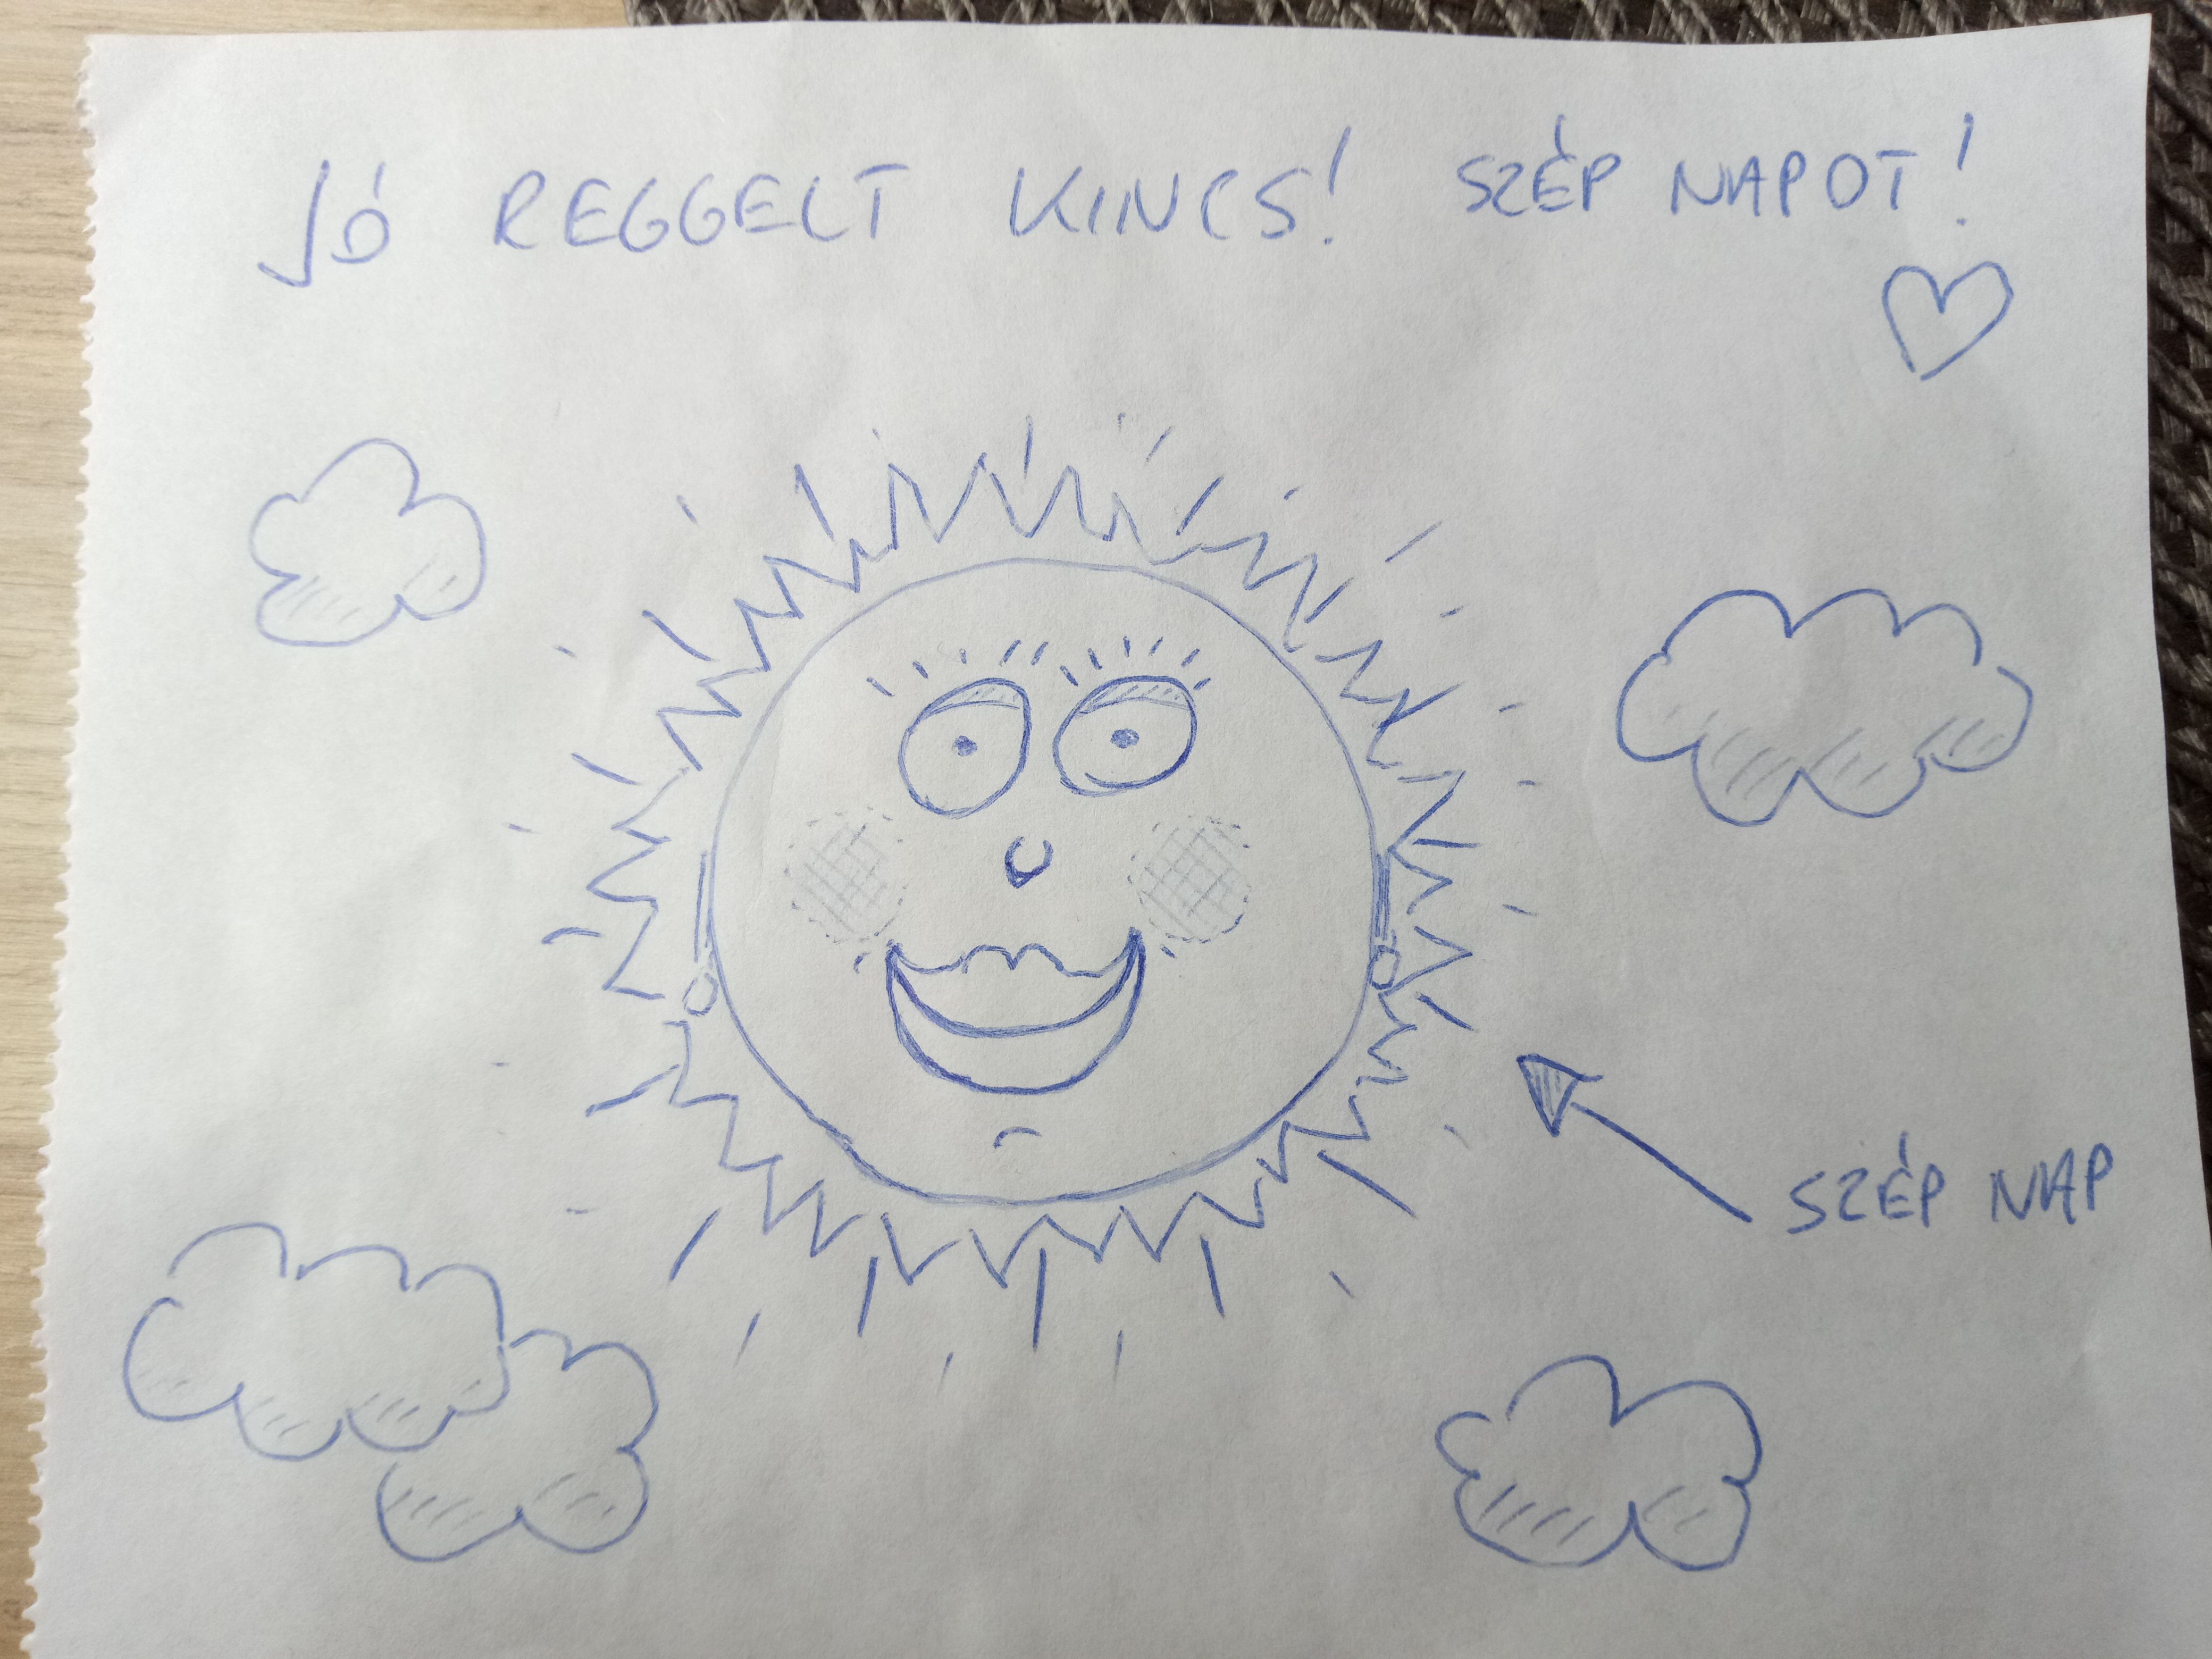 JÓ REGGELT KINCS! SZÉP NAPOT!
SZÉP NAP